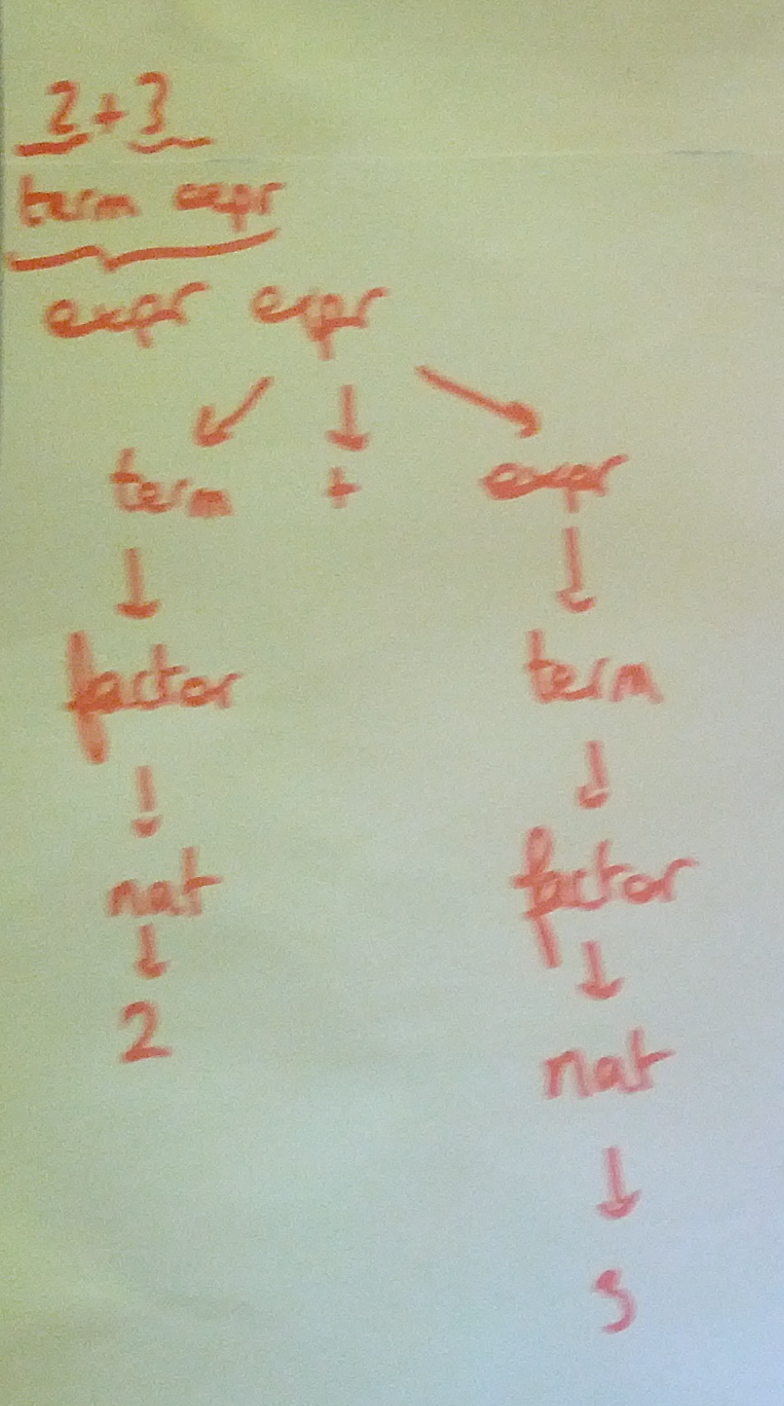 2+3
term expr
expr expr
term + expr
factor term
nat factor
2 nat
3